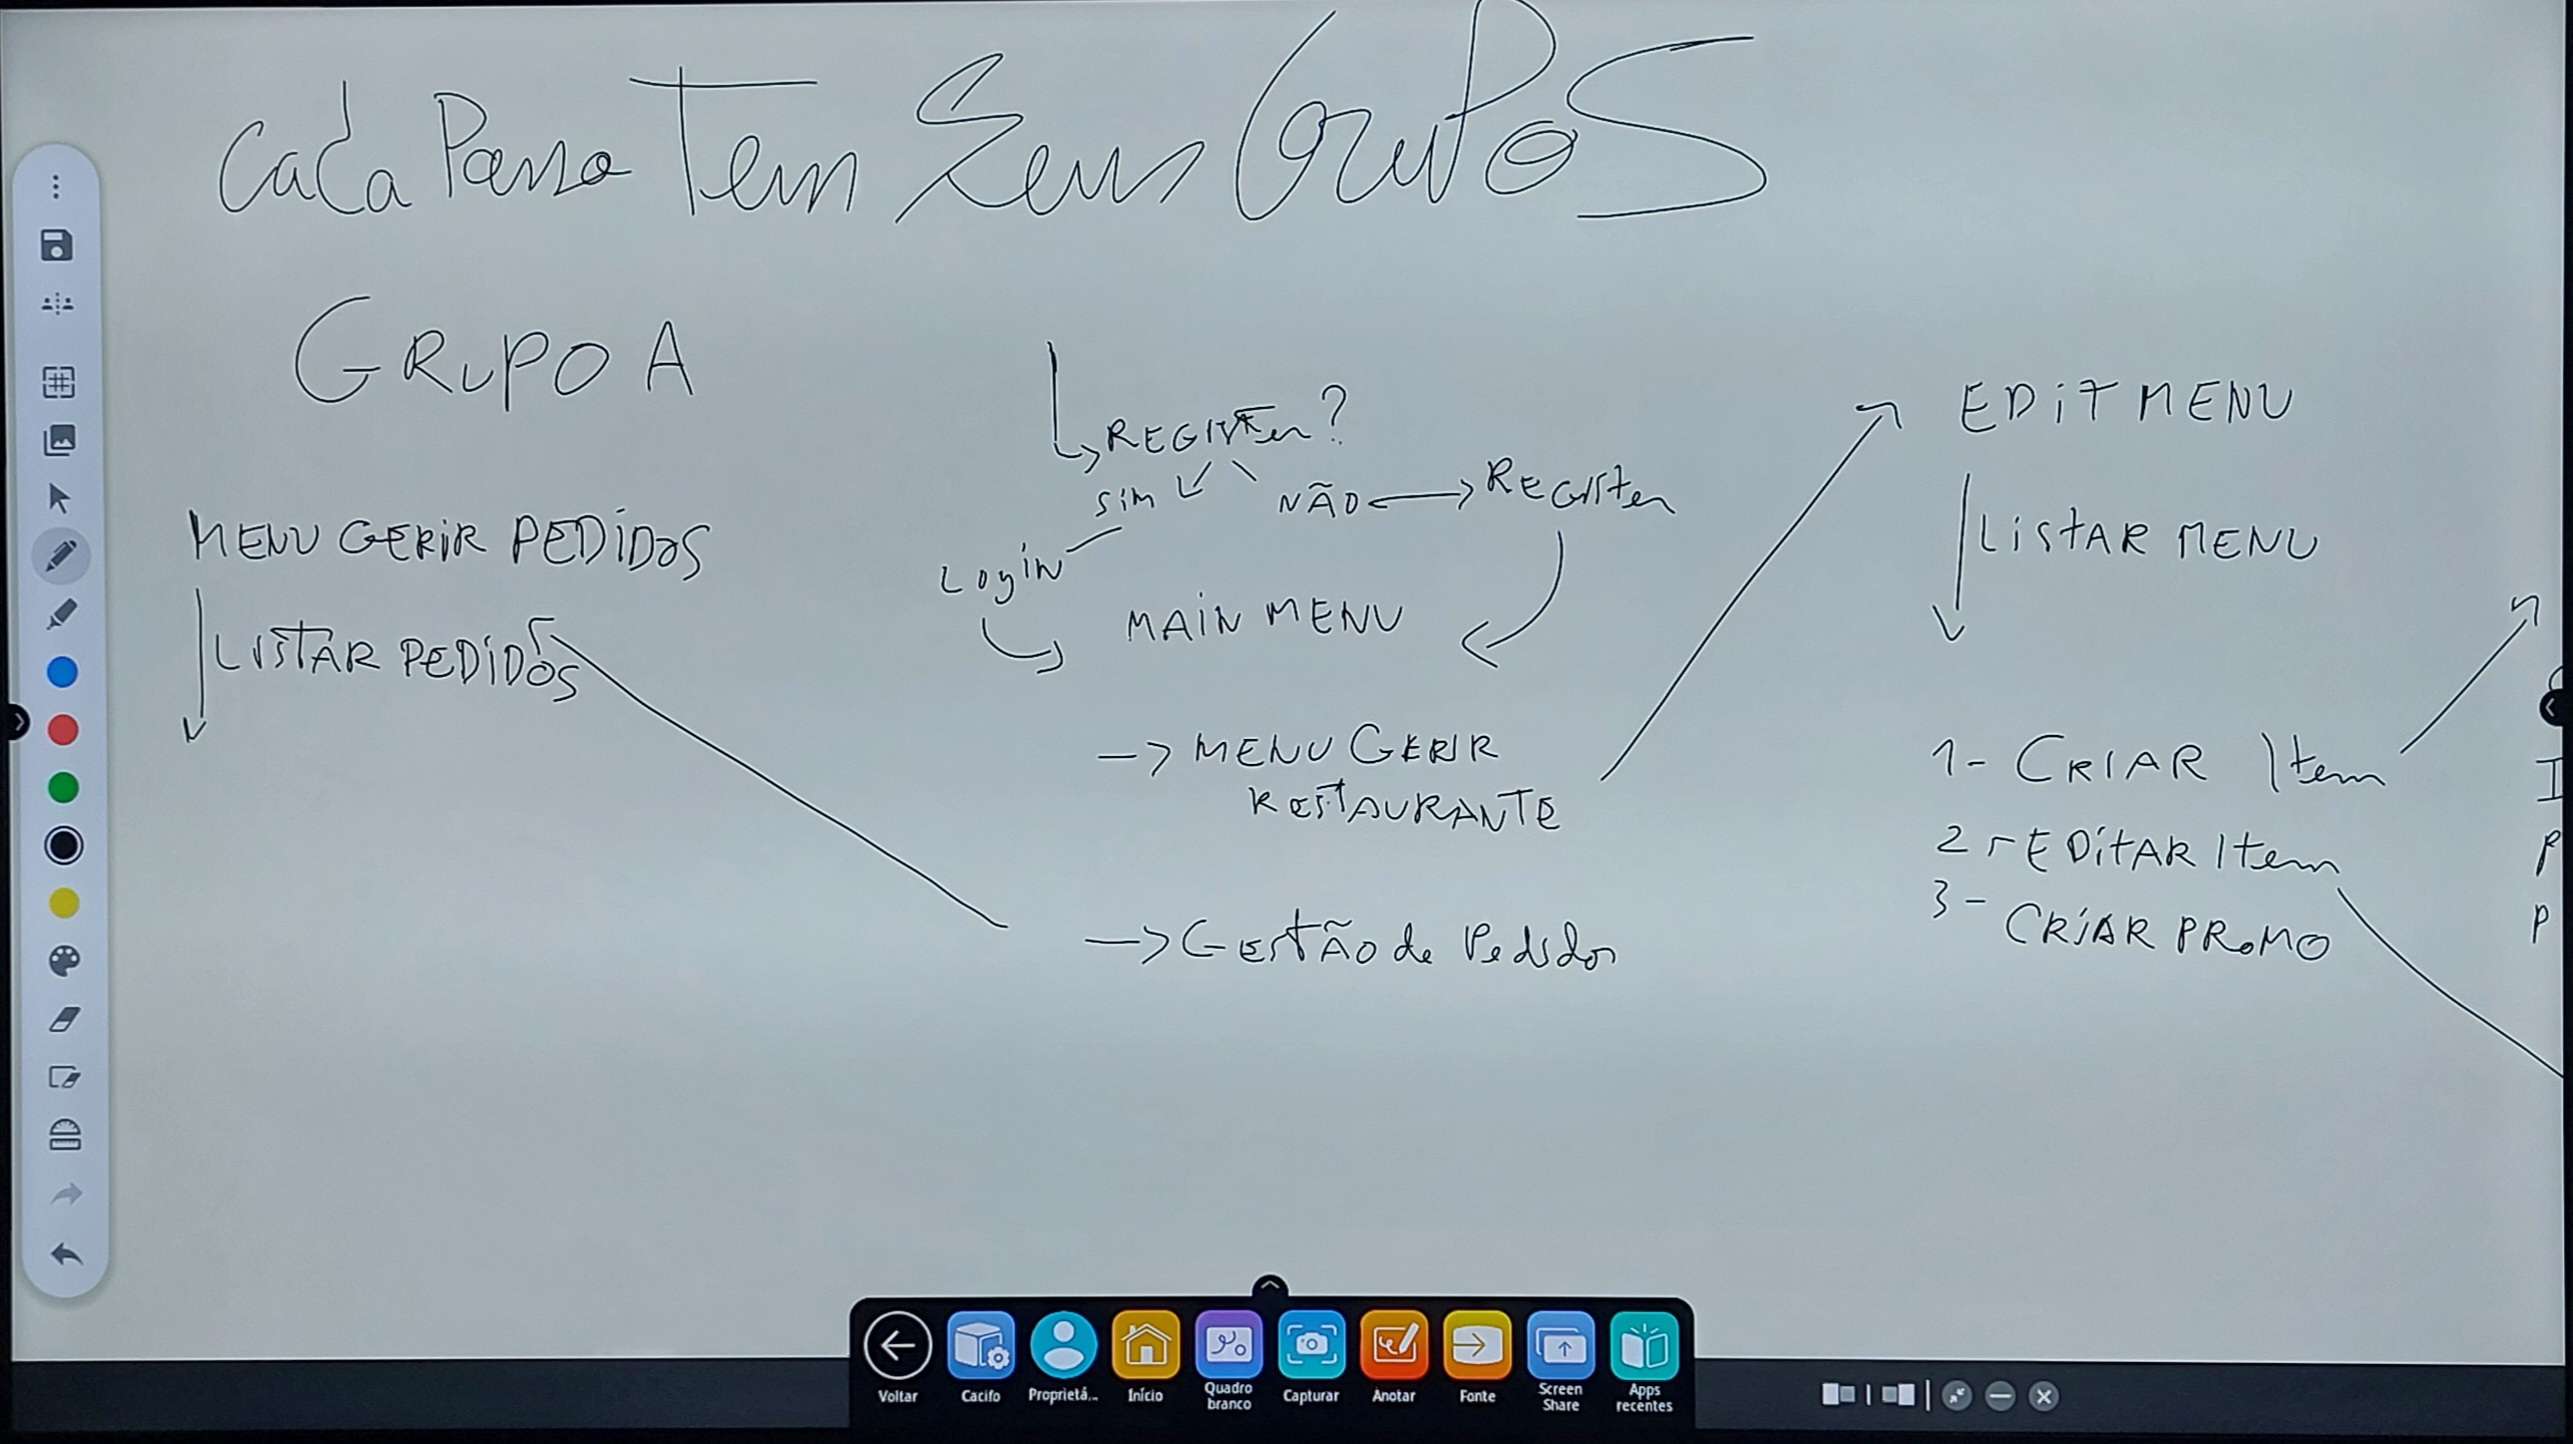 Cada Passo Tem Seus Grupos
GRUPO A
MENU GERIR PEDIDOS
LISTAR PEDIDOS
REGISTER?
sim
NÃO
Register
Login
MAIN MENU
-> MENU GERIR
RESTAURANTE
-> Gestão de Pedidos
EDIT MENU
LISTAR MENU
1- CRIAR Item
2- EDITAR Item
3- CRIAR PROMO
I
P
P
Voltar
Cacifo
Proprietá...
Início
Quadro
branco
Capturar
Anotar
Fonte
Screen
Share
Apps
recentes